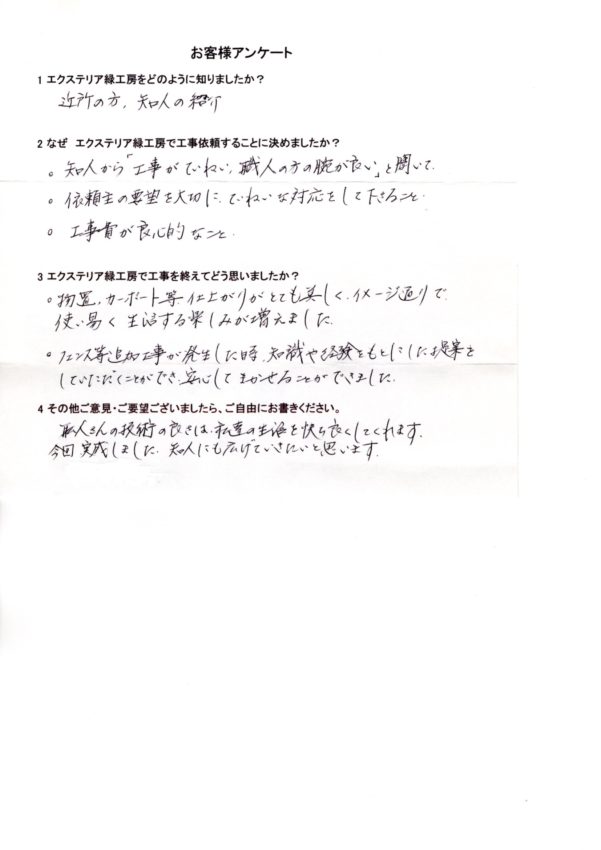 お客様アンケート
1 エクステリア緑工房をどのように知りましたか？
近所の方、知人の紹介
2 なぜ エクステリア緑工房で工事依頼することに決めましたか？
。知人から「工事がていねい、職人の方の腕が良い」と聞いて.
。依頼主の要望を大切に、ていねいな対応をして下さること.
。工事費が良心的なこと.
3 エクステリア緑工房で工事を終えてどう思いましたか？
。物置、カーポート等仕上がりがとても美しく、イメージ通りで、
使い易く生活する楽しみが増えました.
。フェンス等追加工事が発生した時、知識や経験をもとにした提案を
していただくことができ、安心してまかせることができました.
4 その他ご意見・ご要望ございましたら、ご自由にお書きください。
職人さんの技術の良さは、私達の生活を快ち良くしてくれます.
今回実感しました. 知人にも広げていきたいと思います.